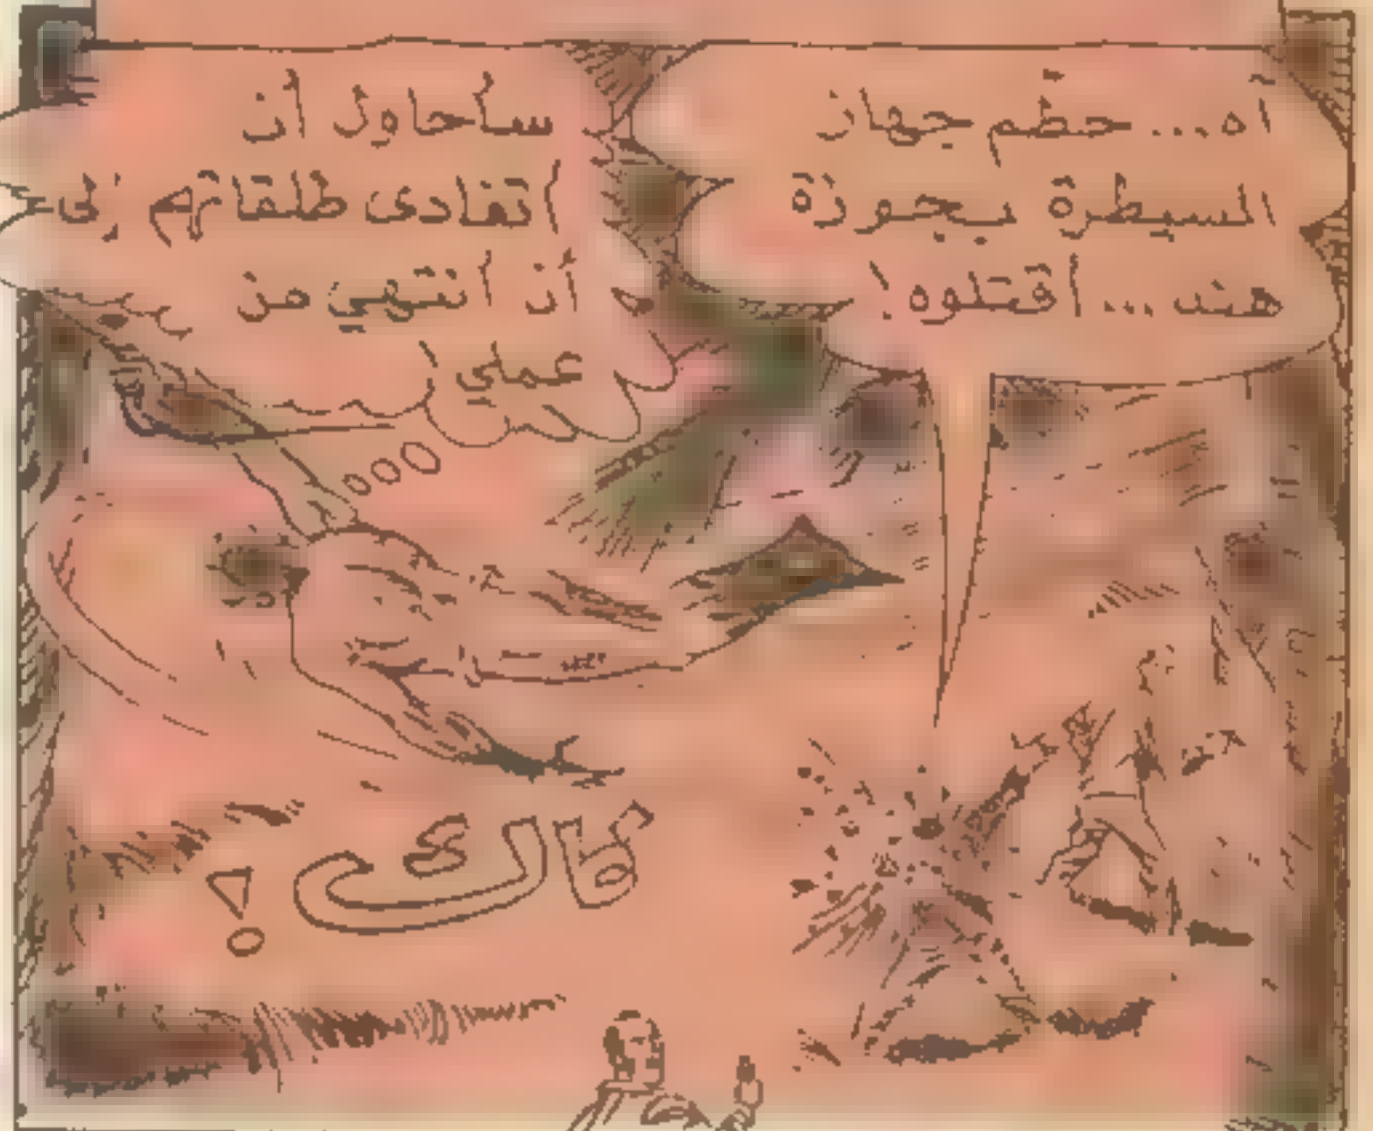 اه... حطّم جهاز
السيطرة بجوزة
هند... أقتلوه!
سأحاول أن
أتفادى طلقاتهم إلى
أن أنتهي من
عملي!
طاك!